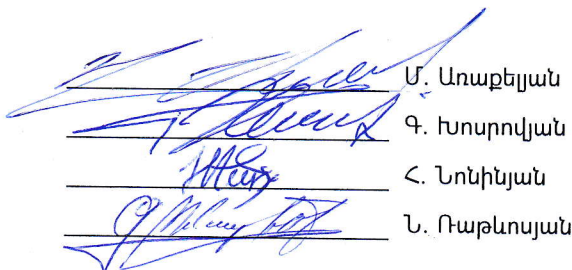 Մ. Առաքելյան
Գ. Խոսրովյան
Հ. Նոնինյան
Ն. Ռաթևոսյան